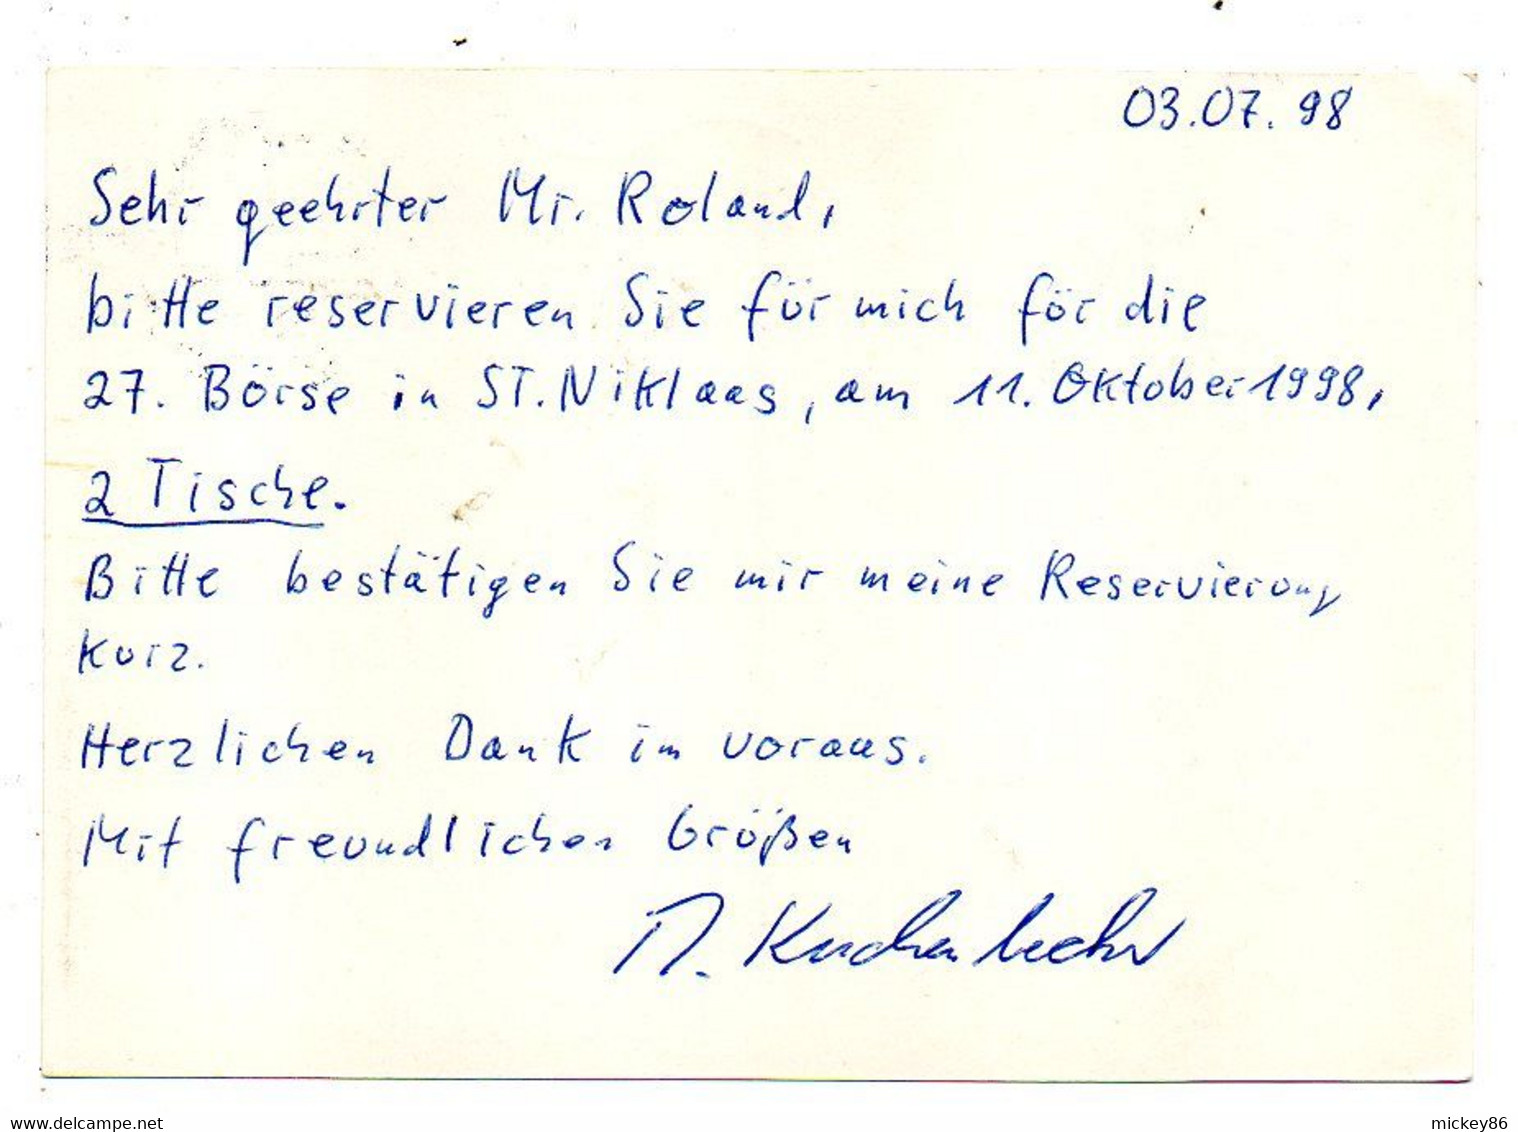 03.07.98
Sehr geehrter Mr. Roland,
bitte reservieren Sie für mich für die
27. Börse in ST. Niklaas, am 11. Oktober 1998,
2 Tische.
Bitte bestätigen Sie mir meine Reservierung
kurz.
Herzlichen Dank im voraus.
Mit freundlichen Grüßen
www.delcampe.net
mickey86